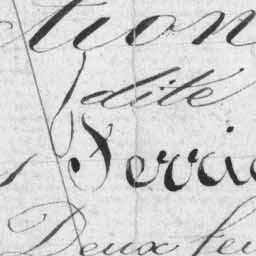 tion
dite
Ferrie
Deux feu